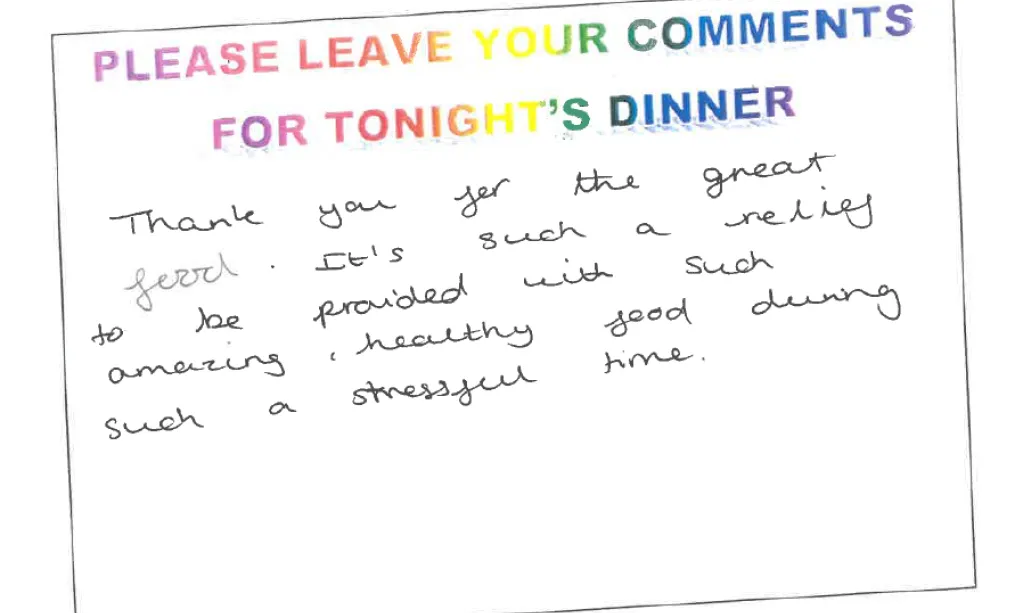 PLEASE LEAVE YOUR COMMENTS
FOR TONIGHT'S DINNER
Thank you for the great
food. It's such a relief
to be provided with such
amazing, healthy food during
such a stressful time.